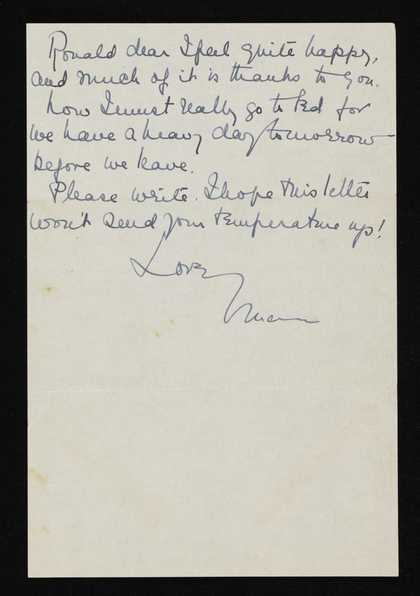 Ronald dear I feel quite happy,
and much of it is thanks to you.
Now I must really go to bed for
we have a heavy day tomorrow
before we leave.
Please write. I hope this letter
won't send your temperature up!
Love